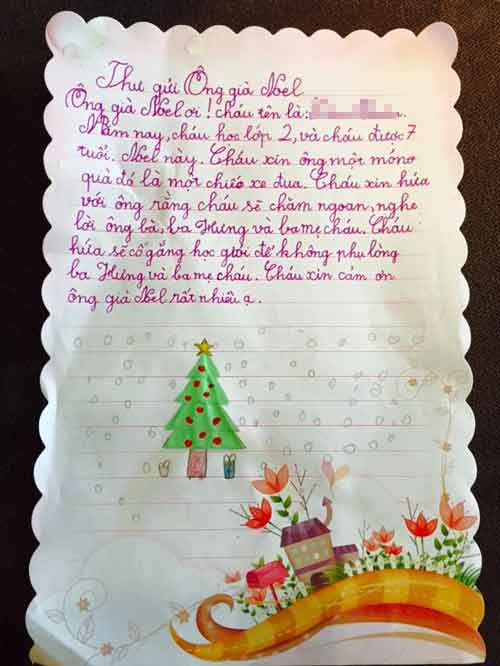 Thư gửi Ông già Noel
Ông già Noel ơi! cháu tên là:
Năm nay, cháu học lớp 2, và cháu được 7
tuổi. Noel này. Cháu xin ông một món
quà đó là một chiếc xe đua. Cháu xin hứa
với ông rằng cháu sẽ chăm ngoan, nghe
lời ông bà, ba Hưng và ba mẹ cháu. Cháu
hứa sẽ cố gắng học giỏi để không phụ lòng
ba Hưng và ba mẹ cháu. Cháu xin cám ơn
ông già Noel rất nhiều ạ.